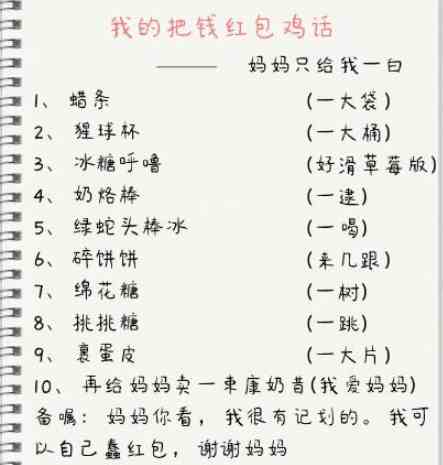 我的把钱红包鸡话
—— 妈妈只给我一白
1、 蜡条 (一大袋)
2、 猩球杯 (一大桶)
3、 冰糖呼噜 (好滑草莓版)
4、 奶烙棒 (一逮)
5、 绿蛇头棒冰 (一喝)
6、 碎饼饼 (来几跟)
7、 绵花糖 (一树)
8、 挑挑糖 (一跳)
9、 裹蛋皮 (一大片)
10、 再给妈妈卖一束康奶昔(我爱妈妈)
备嘱：妈妈你看，我很有记划的。我可
以自己蠡红包，谢谢妈妈